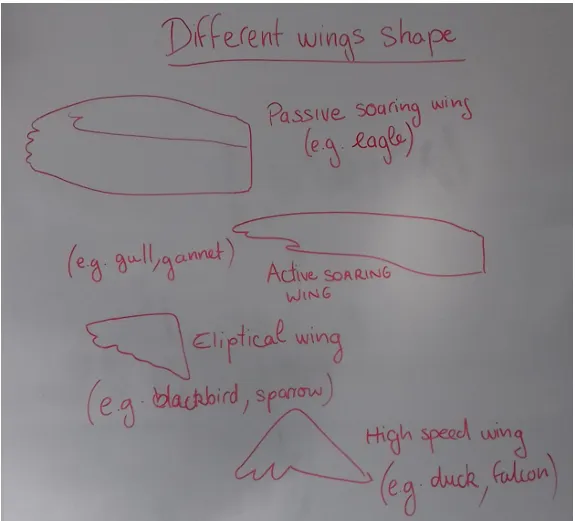 Different wings shape
Passive soaring wing
(e.g. eagle)
(e.g. gull, gannet)
Active SOARING
WING
Eliptical wing
(e.g. blackbird, sparrow)
High speed wing
(e.g. duck, falcon)